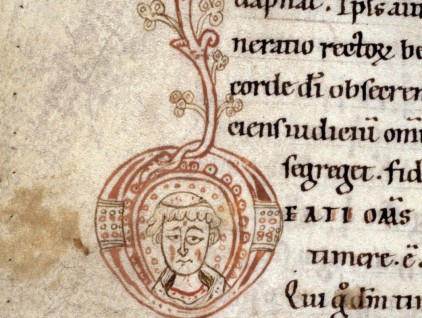 daphat. Ipsi aut
neratio rectoꝝ be
corde dī obsecren
ciensiudiciū om̄
segreget. fid
EATI OM̄S
timere. ē
Qui